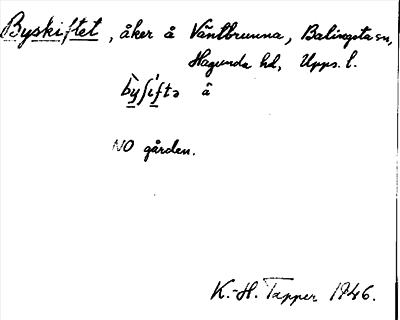 Byskiftet, åker å Väntbrunna, Balingsta sn,
Hagunda hd, Upps. l.
bỳʃíftə å
NO gården.
K.-H. Tapper 1946.